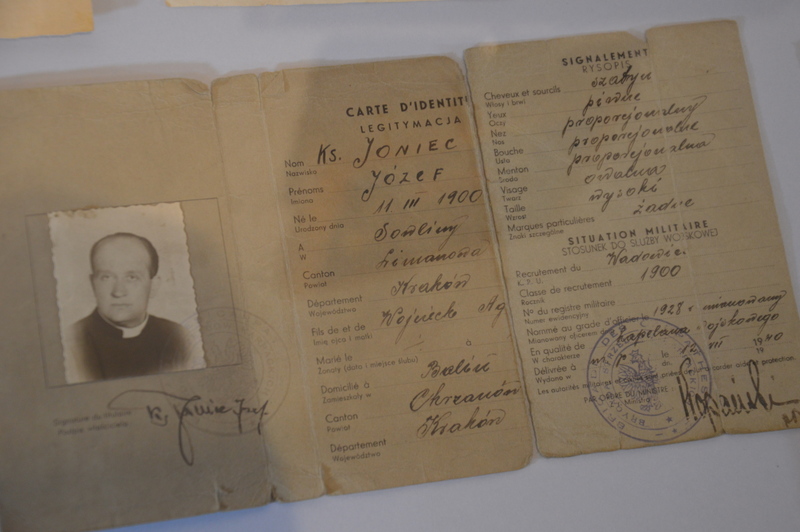 CARTE D'IDENTIT
LEGITYMACJA
Nom Ks. JONIEC
Nazwisko
Prénoms JÓZEF
Imiona
Né le 11 III 1900
Urodzony dnia
A
W
Canton Limanowa
Powiat
Département Kraków
Województwo
Fils de et de Wojciech Ag
Imię ojca i matki
Marié le à
Żonaty (data i miejsce ślubu)
Domicilié à Balin
Zamieszkały w
Canton Chrzanów
Powiat
Département Kraków
Województwo
SIGNALEMENT
RYSOPIS
Cheveux et sourcils
Włosy i brwi
Yeux piwne
Oczy
Nez proporcjonalny
Nos
Bouche proporcjonalne
Usta
Menton proporcjonalna
Broda
Visage owalna
Twarz
Taille wysoki
Wzrost
Marques particulières żadne
Znaki szczególne
SITUATION MILITAIRE
STOSUNEK DO SŁUŻBY WOJSKOWEJ
Recrutement du Wadowice
K. P. U.
Classe de recrutement 1900
Rocznik
No du registre militaire
Numer ewidencyjny
Nommé au grade d'officier le 1928 r. mianowany
Mianowany oficerem
En qualité de Kapelana wojskowego
W charakterze
Délivrée à le VII 1940
Wydana w dn. 19
Les autorités
PAR ORDRE DU MINISTRE